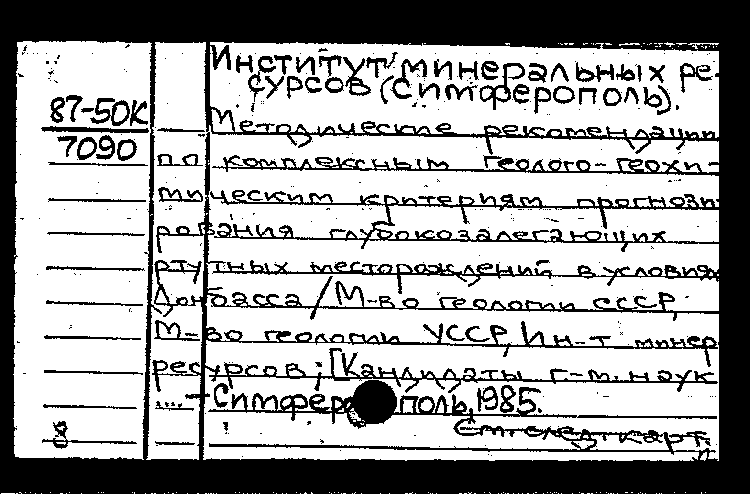 Институт минеральных ре-
сурсов (Симферополь).
87-50К
7090
Методические рекомендации
по комплексным геолого-геохи-
мическим критериям прогнози-
рования глубокозалегающих
ртутных месторождений в условиях
Донбасса / М-во геологии СССР,
М-во геологии УССР, Ин-т минер
ресурсов; [Кандидаты г.-м. наук
....- Симферополь, 1985.
См. след. карт.